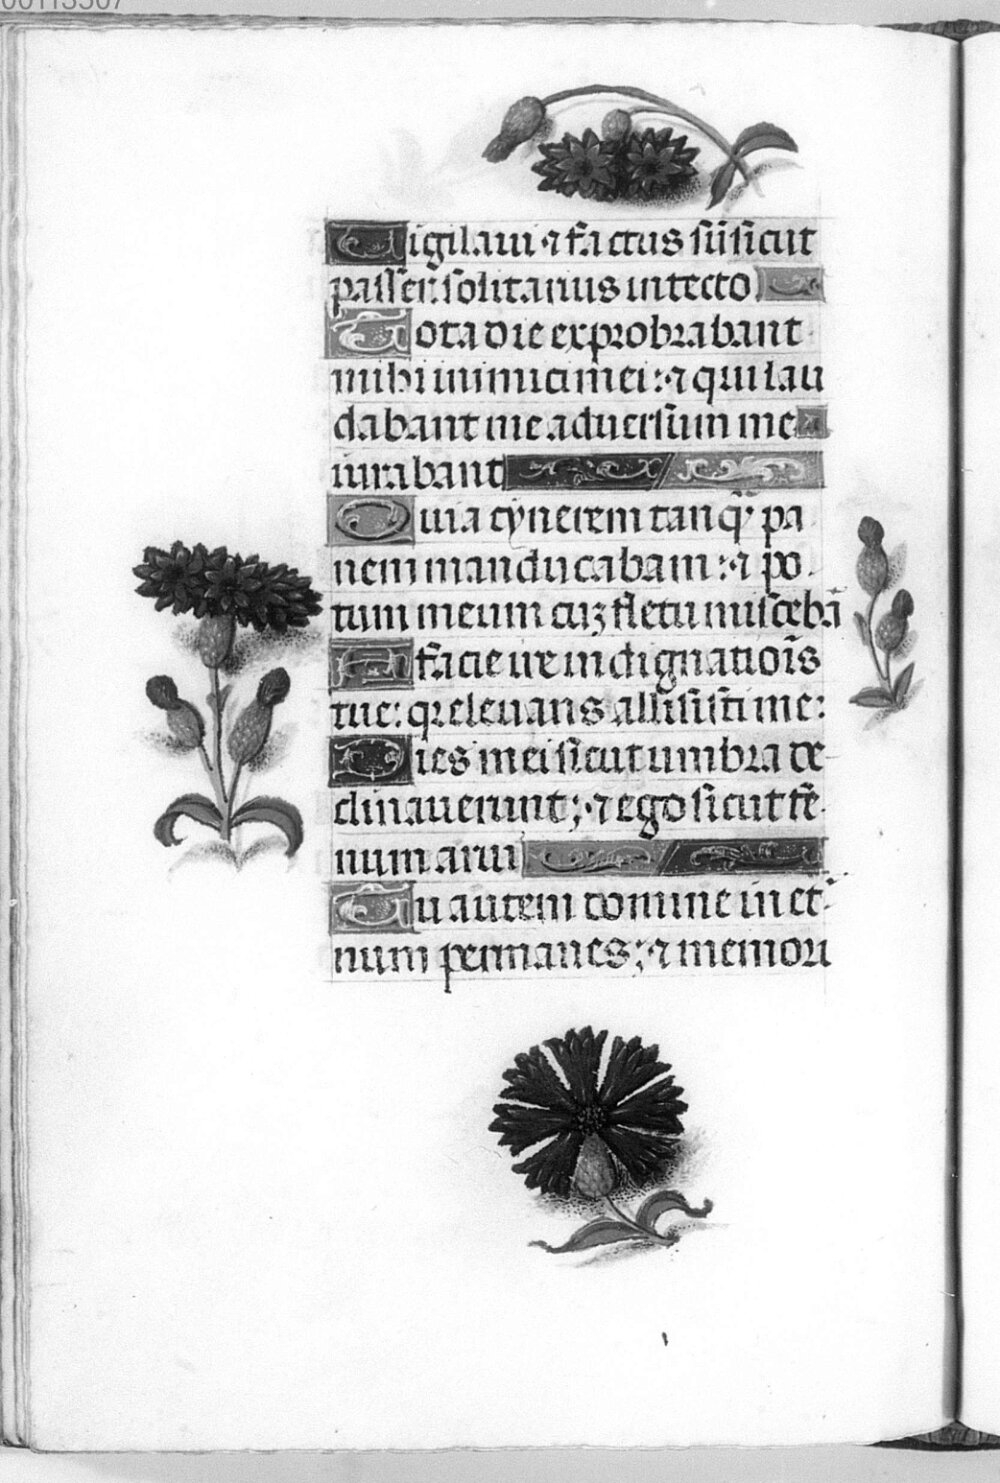 00113507
Vigilaui ⁊ factus sū sicut
passer: solitarius in tecto
Tota die exprobrabant
mihi inimici mei: ⁊ qui lau
dabant me aduersum me
iurabant
Quia cynerem tanq̄ pa
nem manducabam: ⁊ po
tum meum cuꝫ fletu miscebā
A facie ire indignatiōis
tue: qr eleuans allisisti me:
Dies mei sicut umbra de
clinauerunt: ⁊ ego sicut fe
num arui
Tu autem domine in et̄
num permanes: ⁊ memori